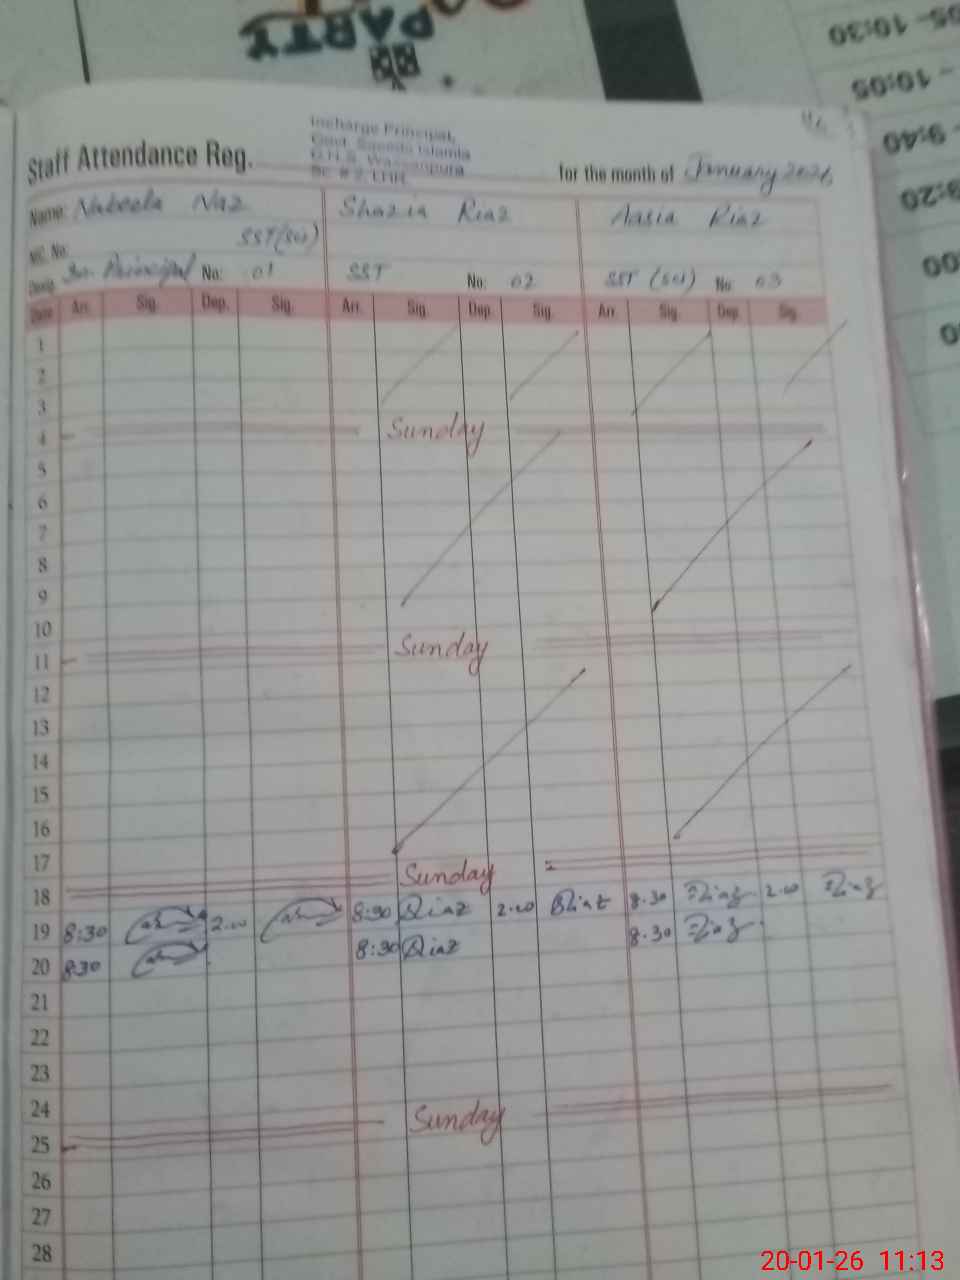 PARTY
05-10:30
- 10:05
- 9:40
Incharge Principal,
Govt. Saeeda Islamia
G.H.S. Wassanpura
Staff Attendance Reg.
for the month of January 2026
Name: Nabeela Naz Shazia Riaz Aasia Riaz
SST(sci)
Desig. In. Principal No: 01 SST No: 02 SST (sci) No 03
Date Arr. Sig. Dep. Sig. Arr. Sig. Dep. Sig. Arr. Sig. Dep. Sig.
1
2
3
4 Sunday
5
6
7
8
9
10
11 Sunday
12
13
14
15
16
17
18 Sunday
19 8:30 2.00 8:30 Riaz 2.00 Riaz 8.30 Riaz 2.00 Riaz
20 8:30 8:30 Riaz 8.30 Riaz
21
22
23
24
25 Sunday
26
27
28
20-01-26 11:13